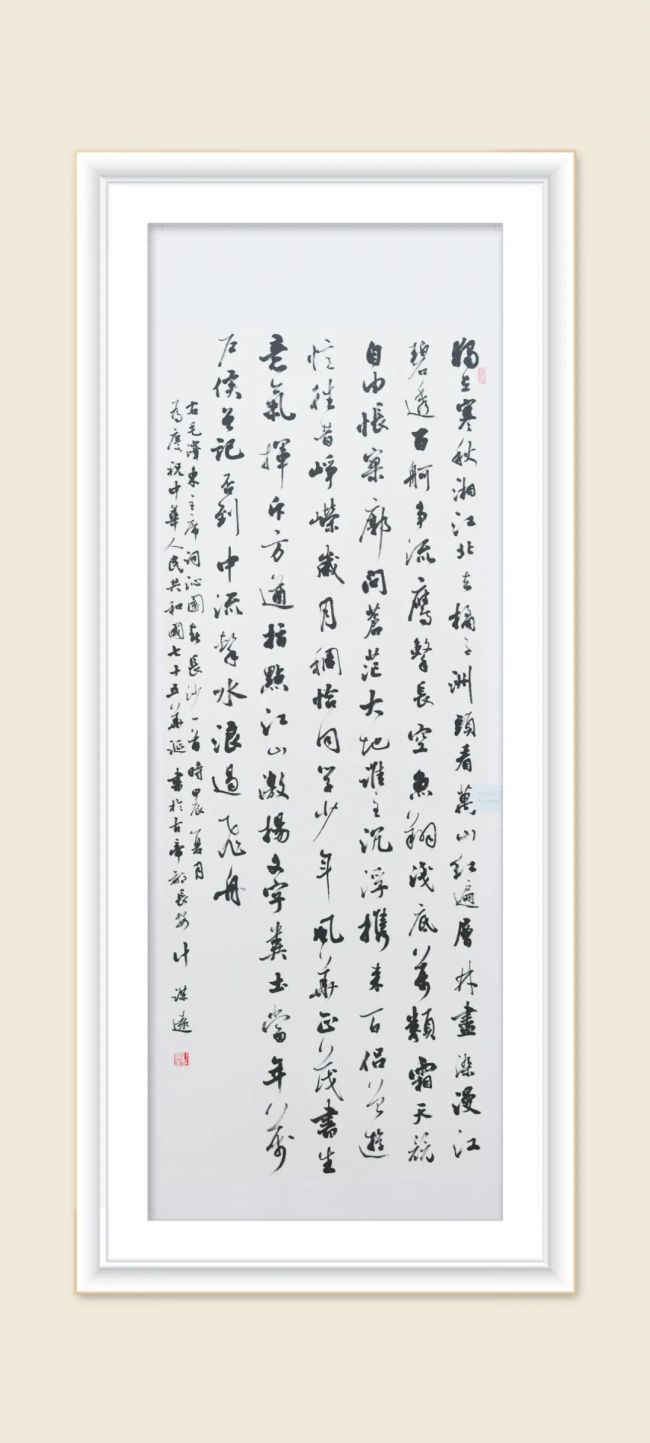 獨立寒秋湘江北去橘子洲頭看萬山紅遍層林盡染漫江
碧透百舸争流鷹擊長空魚翔淺底萬類霜天競
自由悵寥廓問蒼茫大地誰主沉浮携来百侣曾遊
憶往昔崢嶸歲月稠恰同学少年風華正茂書生
意氣揮斥方遒指點江山激揚文字糞土當年萬户
侯曾記否到中流擊水浪遏飛舟
右毛澤東主席詞沁園春長沙一首時甲辰夏月
為慶祝中華人民共和國七十五華誕書於古帝都長安叶謀遠